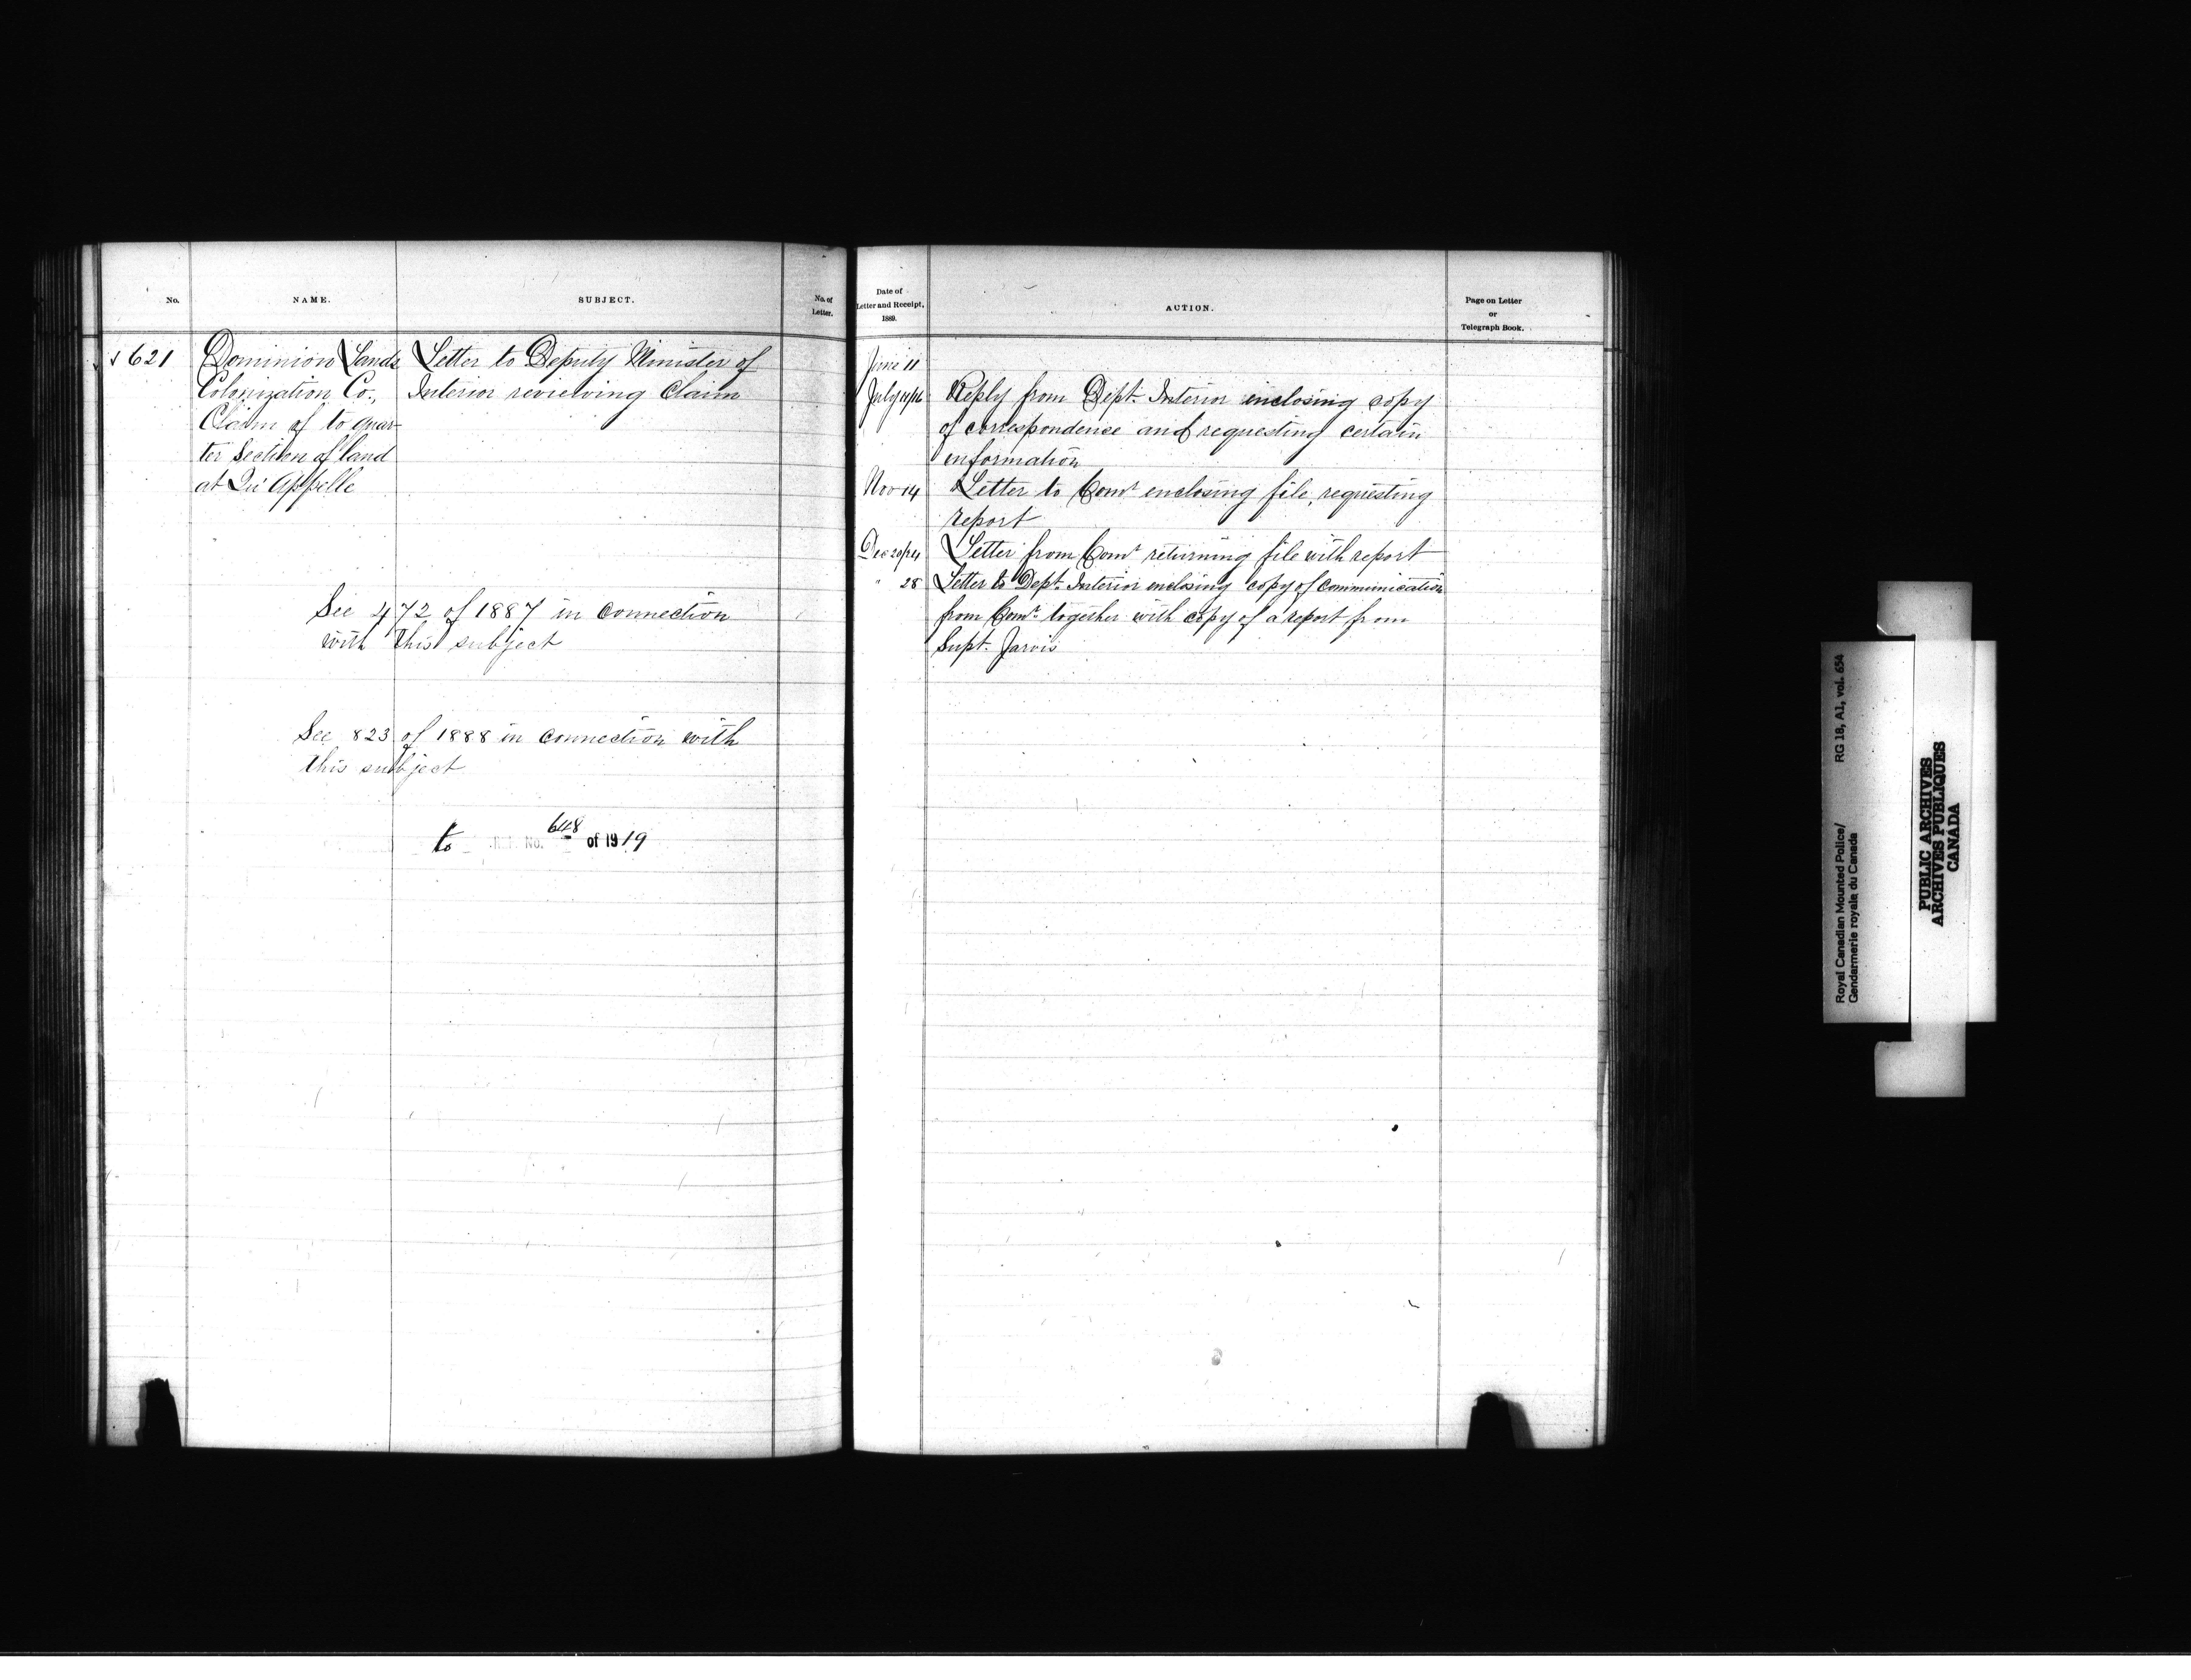 No.
NAME.
SUBJECT.
No. of
Letter.
621
Dominion Lands
Colonization Co.,
Claim of to quar-
ter Section of land
at Qu'Appelle
Letter to Deputy Minister of
Interior reviewing Claim
See 472 of 1887 in connection
with this subject
See 823 of 1888 in connection with
this subject
to No. 648 of 1919
Date of
Letter and Receipt.
1889.
ACTION.
Page on Letter
or
Telegraph Book.
June 11
July Reply from Dept. Interior enclosing copy
of correspondence and requesting certain
information
Nov 14 Letter to Comr enclosing file, requesting
report
Dec 20/24 Letter from Comr returning file with report
" 28 Letter to Dept. Interior enclosing copy of communication
from Comr together with copy of a report from
Supt. Jarvis
Royal Canadian Mounted Police/ RG 18, A1, vol. 654
Gendarmerie royale du Canada
PUBLIC ARCHIVES
ARCHIVES PUBLIQUES
CANADA